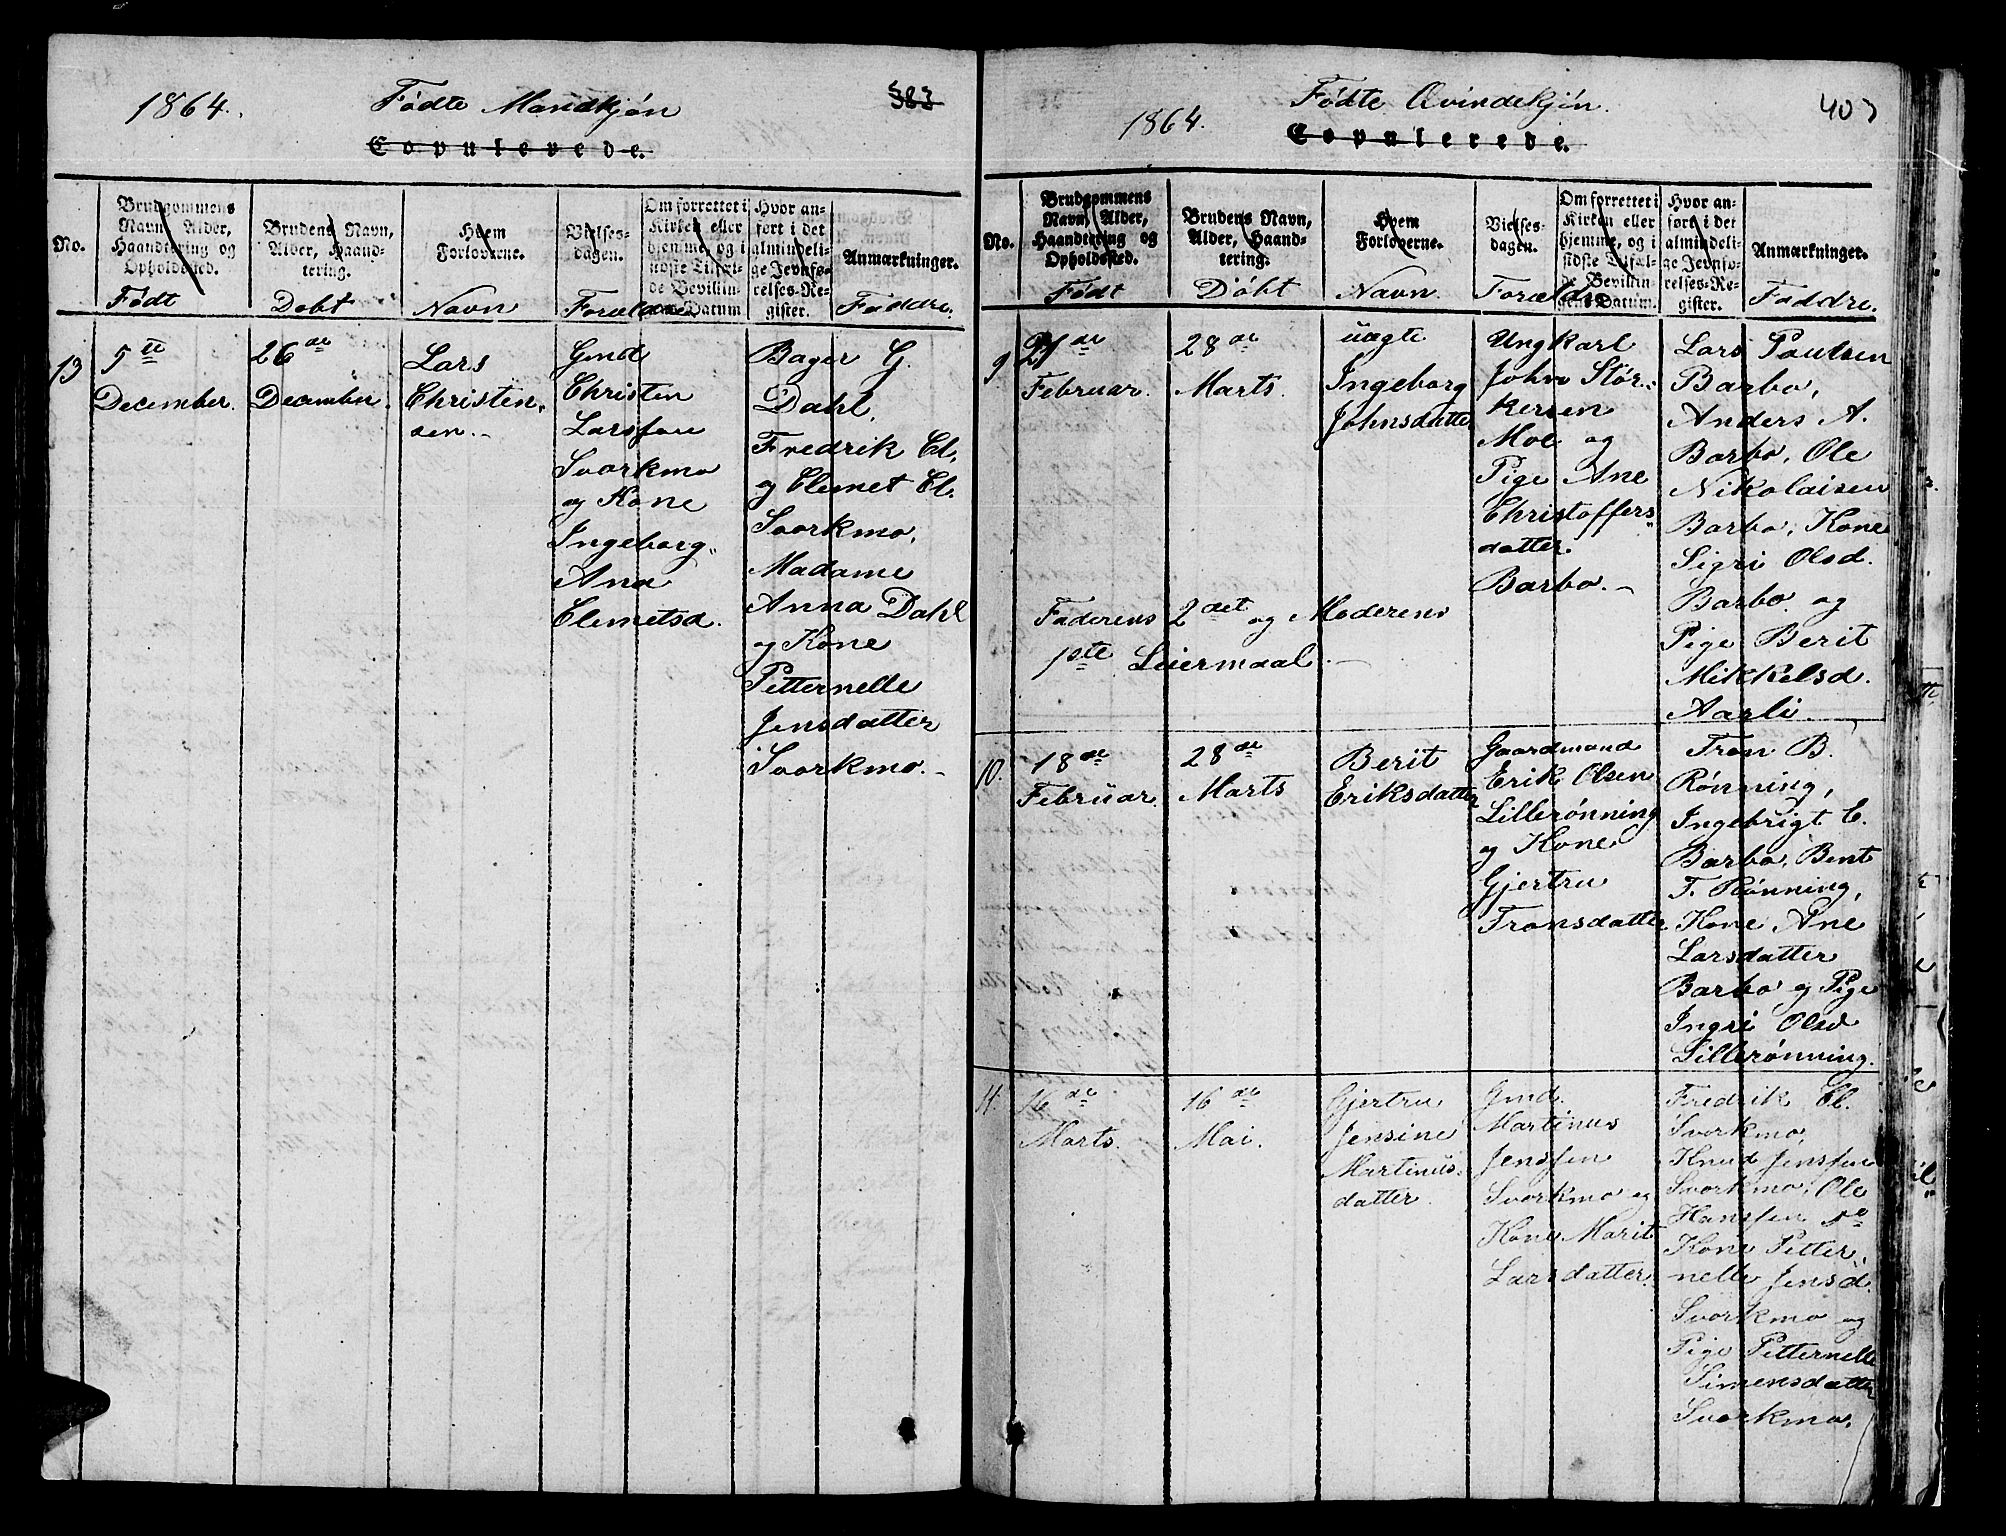 1864.
Fødte Mandkjøn
383
Copulerede.
No.
Brudgommens Navn, Alder, Haandtering og Opholdssted.
Brudens Navn, Alder, Haandtering.
Hvem Forloverne.
Vielsesdagen.
Om forrettet i Kirken eller hjemme, og i sidste Tilfælde Bevillingens Datum
Hvor anført i det almindelige Jevnførelses-Register.
Anmærkninger.
Født
Døbt
Navn
Forældre
Faddre.
13
5te
December.
26de
December.
Lars
Christen-
sen.
Gmd
Christen
Larssen
Svorkmo
og Kone
Ingeborg
Ana
Clemetsd.
Bager G.
Dahl,
Fredrik Cl.
og Clemet Cl.
Svorkmo,
Madame
Anna Dahl
og Kone
Petternelle
Jensdatter
Svorkmo.
1864.
Fødte Qvindekjøn.
403
Copulerede.
No.
Brudgommens Navn, Alder, Haandtering og Opholdssted.
Brudens Navn, Alder, Haandtering.
Hvem Forloverne.
Vielsesdagen.
Om forrettet i Kirken eller hjemme, og i sidste Tilfælde Bevillingens Datum.
Hvor anført i det almindelige Jevnførelses-Register.
Anmærkninger.
Født
Døbt
Navn.
Forældre
Faddre.
9
21de
Februar.
28de
Marts.
uægte
Ingeborg
Johnsdatter
Ungkarl
John Stør-
kersen
Moe og
Pige Ane
Christoffers
datter
Barbo.
Lars Paulsen
Barbo,
Anders A.
Barbo, Ole
Nikolaisen
Barbo, Kone
Sigri Olsd.
Barbo og
Pige Berit
Mikkelsd.
Aarli.
Faderens 2det og Moderens
1ste Leiermaal.
10.
18de
Februar
28de
Marts
Berit
Eriksdatter
Gaardmand
Erik Olsen
Lillerønning
og Kone
Gjertru
Tronsdatter
Tron B.
Rønning,
Ingebrigt C.
Barbo, Bent
T. Rønning,
Kone Ane
Larsdatter
Barbo og Pige
Ingri Olsd
Lillerønning.
11.
16de
Marts.
16de
Mai.
Gjertru
Jensine
Martinus-
datter
Gmd.
Martinus
Jenssen
Svorkmo og
Kone Marit
Larsdatter.
Fredrik Cl.
Svorkmo,
Knud Jenssen
Svorkmo, Ole
Hanssen
Kone Petter-
nelle Jensd.
Svorkmo og
Pige Petternelle
Simensdatter
Svorkmo.